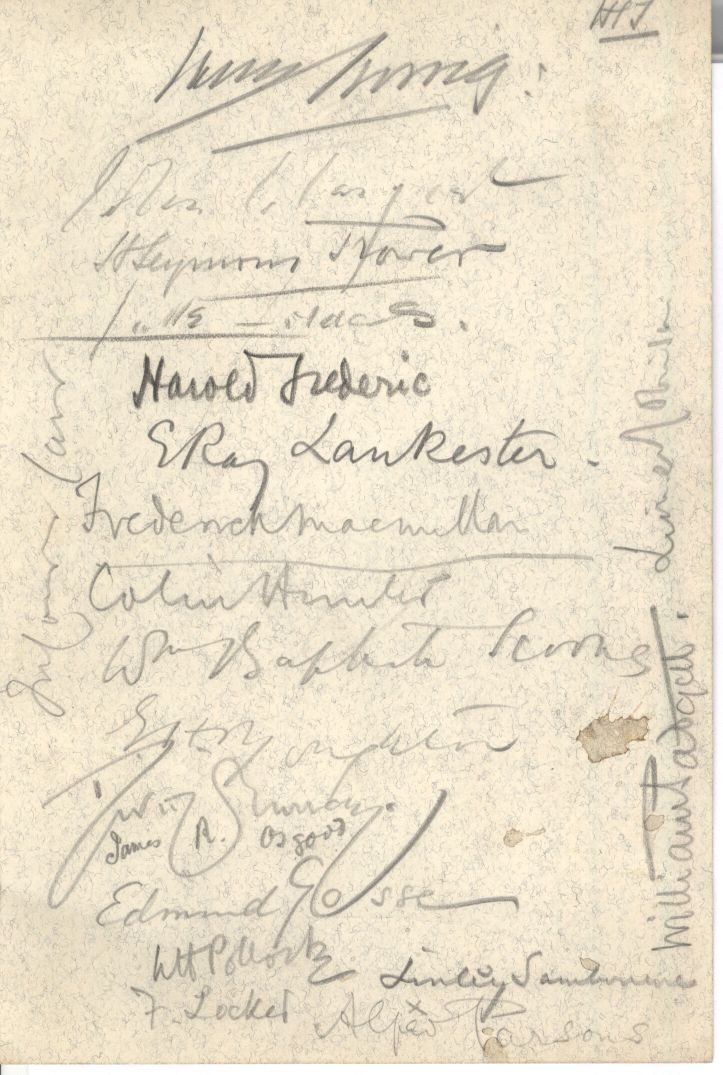 HJ
Henry Irving.
John S. Sargent
H Seymour Trower
Harold Frederic
E Ray Lankester.
Frederick Macmillan
Colin Hunter
Wm Baptiste Scoones
G H Boughton
David Murray.
James R. Osgood
Edmund Gosse
W H Pollock
Linley Sambourne
F. Locker
Alfred Parsons
J W Comyns Carr
William
Lionel